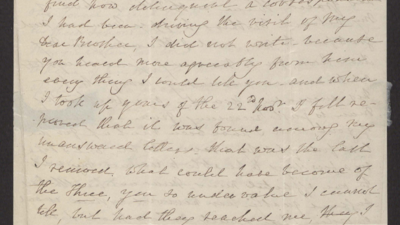 find how delinquent a correspondent
I had been. during the visit of my
Dear Brother, I did not write because
you heard more agreeably from him
every thing I could tell you. and when
I took up yours of the 22nd Novr I felt re-
moved that it was found among my
unanswered letters. that was the last
I received, what could have become of
the three, you so undervalue I cannot
tell, but had they reached me they I